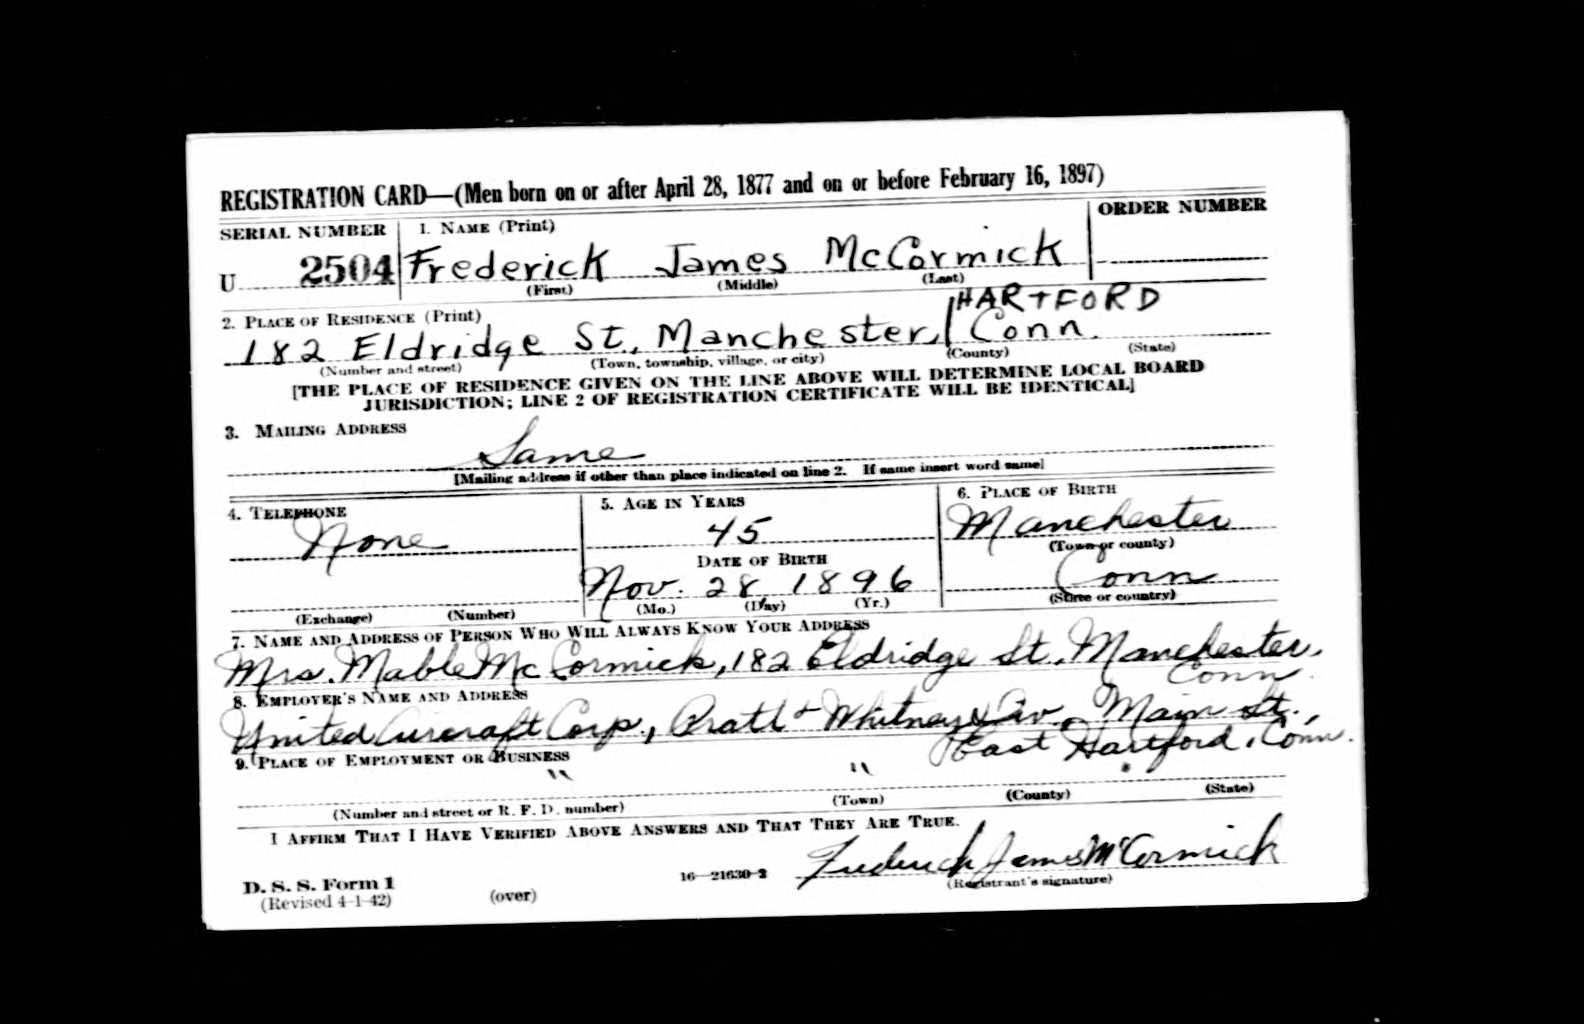 REGISTRATION CARD—(Men born on or after April 28, 1877 and on or before February 16, 1897)
SERIAL NUMBER 1. NAME (Print) ORDER NUMBER
U 2504 Frederick James McCormick
(First) (Middle) (Last)
2. PLACE OF RESIDENCE (Print) HARTFORD
182 Eldridge St., Manchester, Conn.
(Number and street) (Town, township, village, or city) (County) (State)
[THE PLACE OF RESIDENCE GIVEN ON THE LINE ABOVE WILL DETERMINE LOCAL BOARD
JURISDICTION; LINE 2 OF REGISTRATION CERTIFICATE WILL BE IDENTICAL]
3. MAILING ADDRESS
Same
[Mailing address if other than place indicated on line 2. If same insert word same]
4. TELEPHONE 5. AGE IN YEARS 6. PLACE OF BIRTH
None 45 Manchester
(Town or county)
DATE OF BIRTH
Nov. 28 1896 Conn
(Exchange) (Number) (Mo.) (Day) (Yr.) (State or country)
7. NAME AND ADDRESS OF PERSON WHO WILL ALWAYS KNOW YOUR ADDRESS
Mrs. Mable McCormick, 182 Eldridge St., Manchester,
Conn.
8. EMPLOYER'S NAME AND ADDRESS
United Aircraft Corp., Pratt & Whitney Av. Main St.,
East Hartford, Conn.
9. PLACE OF EMPLOYMENT OR BUSINESS
" "
(Number and street or R. F. D. number) (Town) (County) (State)
I AFFIRM THAT I HAVE VERIFIED ABOVE ANSWERS AND THAT THEY ARE TRUE.
Frederick James McCormick
D. S. S. Form 1 16—21630-2 (Registrant's signature)
(Revised 4-1-42) (over)